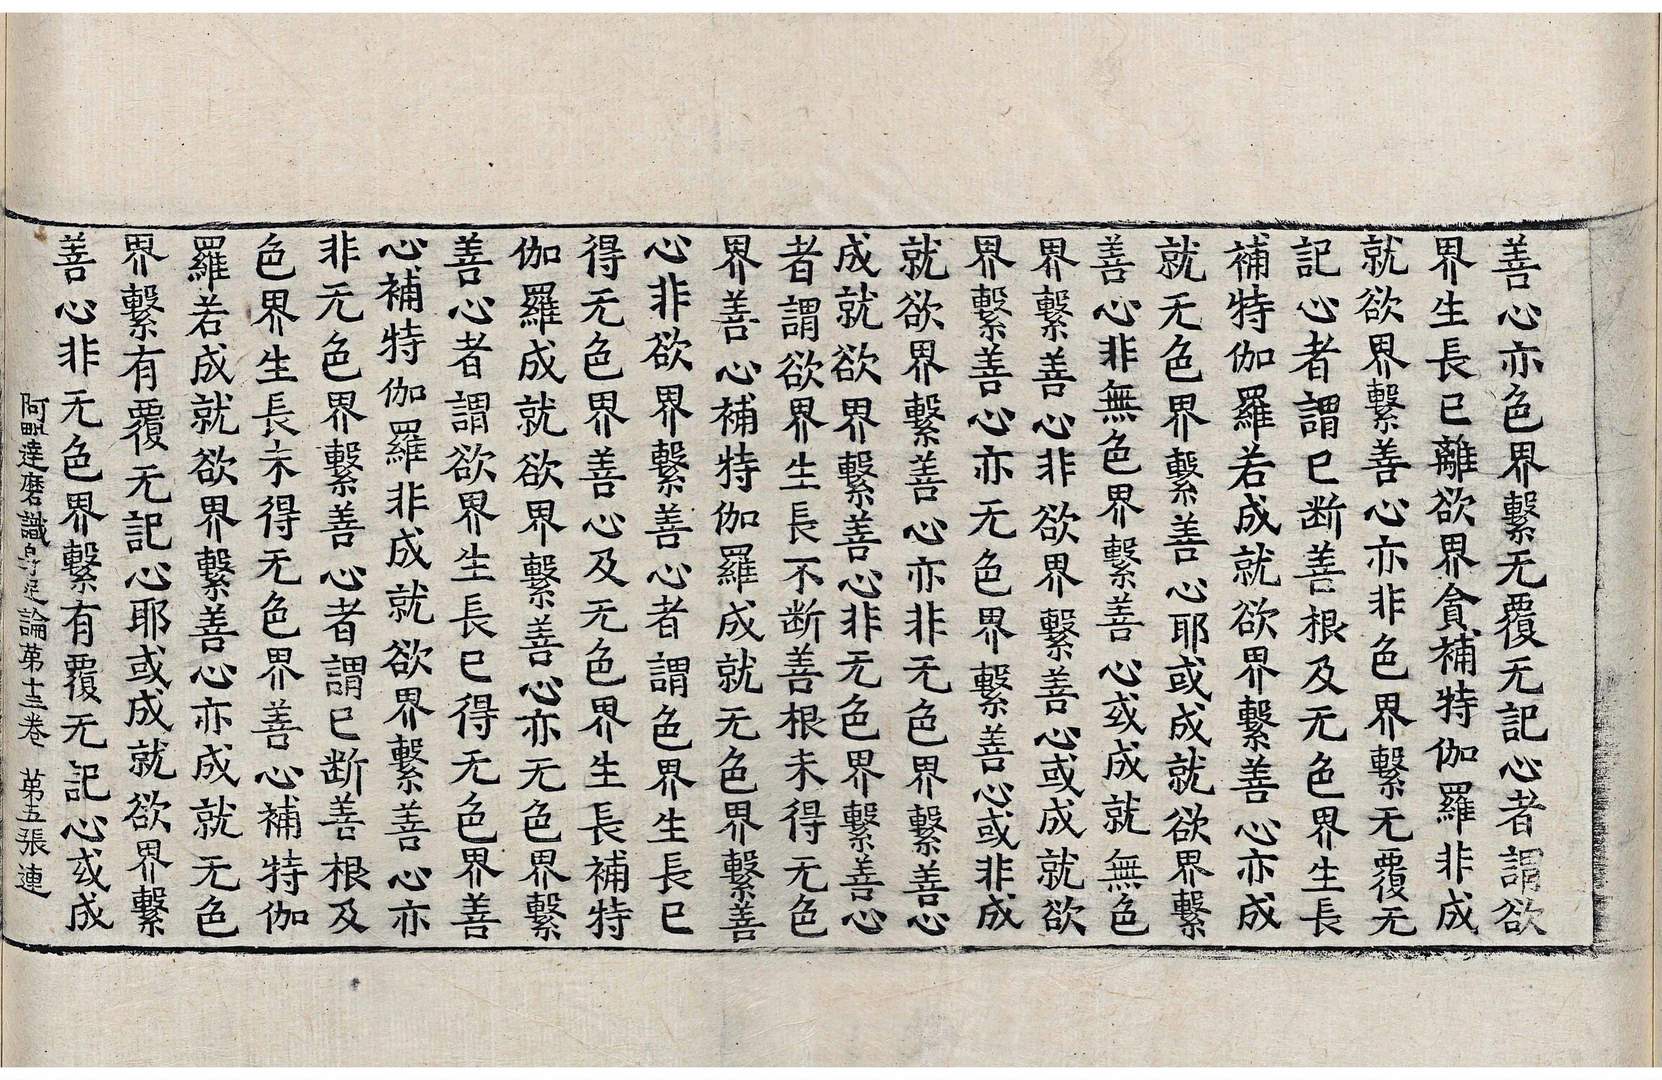 善心亦色界繫无覆无記心者謂欲
界生長已離欲界貪補特伽羅非成
就欲界繫善心亦非色界繫无覆无
記心者謂已断善根及无色界生長
補特伽羅若成就欲界繫善心亦成
就无色界繫善心耶或成就欲界繫
善心非無色界繫善心或成就無色
界繫善心非欲界繫善心或成就欲
界繫善心亦无色界繫善心或非成
就欲界繫善心亦非无色界繫善心
成就欲界繫善心非无色界繫善心
者謂欲界生長不断善根未得无色
界善心補特伽羅成就无色界繫善
心非欲界繫善心者謂色界生長已
得无色界善心及无色界生長補特
伽羅成就欲界繫善心亦无色界繫
善心者謂欲界生長已得无色界善
心補特伽羅非成就欲界繫善心亦
非无色界繫善心者謂已断善根及
色界生長未得无色界善心補特伽
羅若成就欲界繫善心亦成就无色
界繫有覆无記心耶或成就欲界繫
善心非无色界繫有覆无記心或成
阿毗達磨識身足論第十三卷 第五張 連